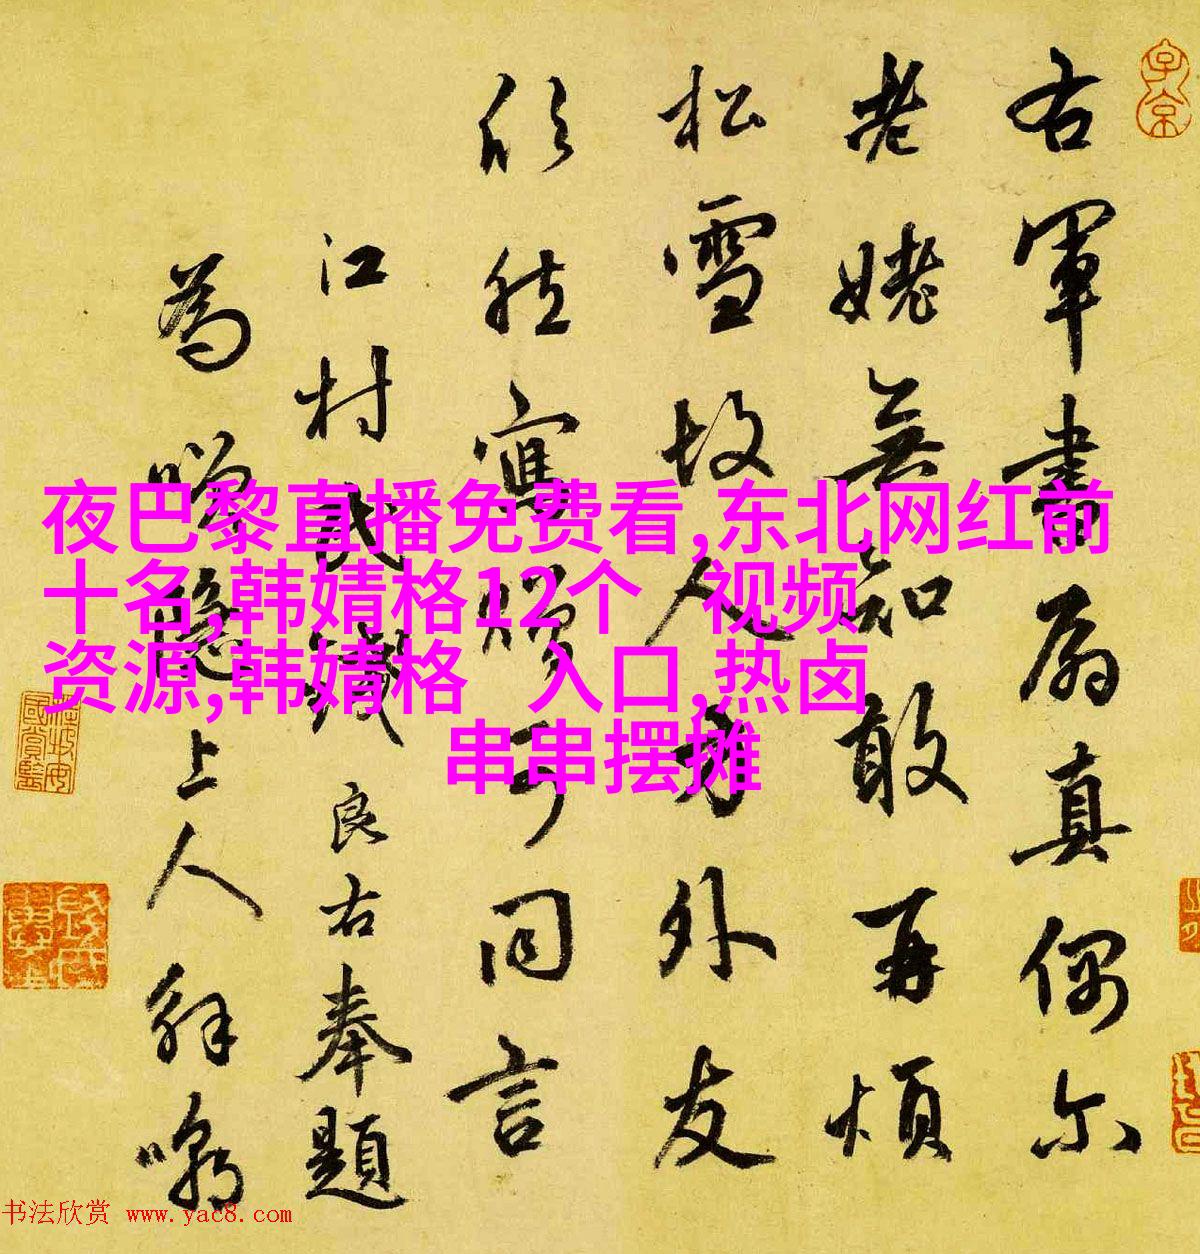 右軍書扇真偶尔
老姥無知敢再煩
松雪故人方外友
欣然寫贈同言
江村民良右奉題
為隱上人解嘲
夜巴黎直播免费看,东北网红前
十名,韩婧格12个 视频
资源,韩婧格 入口,热卤
串串摆摊
书法欣赏 www.yac8.com